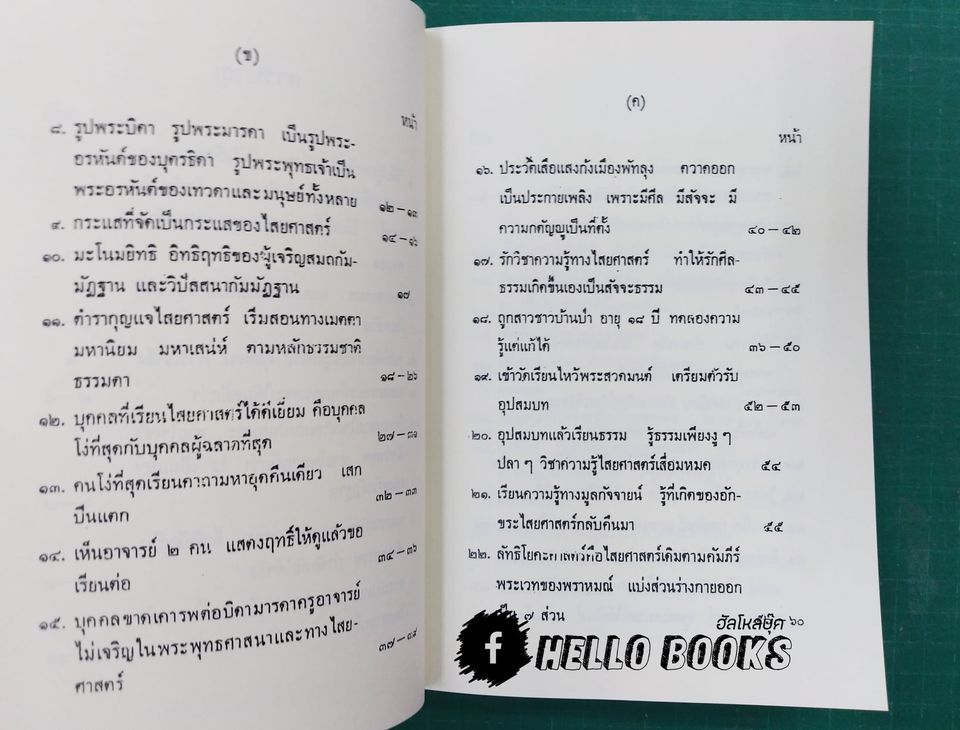 (ข)
หน้า
๘. รูปพระบิดา รูปพระมารดา เป็นรูปพระ-
อรหันต์ของบุตรธิดา รูปพระพุทธเจ้าเป็น
พระอรหันต์ของเทวดาและมนุษย์ทั้งหลาย ๑๒ – ๑๓
๙. กระแสที่จัดเป็นกระแสของไสยศาสตร์ ๑๔ – ๑๖
๑๐. มะโนมยิทธิ อิทธิฤทธิของผู้เจริญสมถกัม-
มัฏฐาน และวิปัสสนากัมมัฏฐาน ๑๗
๑๑. ตำรากุญแจไสยศาสตร์ เริ่มสอนทางเมตตา
มหานิยม มหาเสน่ห์ ตามหลักธรรมชาติ
ธรรมดา ๑๘ – ๒๖
๑๒. บุคคลที่เรียนไสยศาสตร์ได้ดีเยี่ยม คือบุคคล
โง่ที่สุดกับบุคคลผู้ฉลาดที่สุด ๒๗ – ๓๑
๑๓. คนโง่ที่สุดเรียนคาถามหาอุดคืนเดียว เสก
ปืนแตก ๓๒ – ๓๓
๑๔. เห็นอาจารย์ ๒ คน แสดงฤทธิ์ให้ดูแล้วขอ
เรียนต่อ ๓๔ – ๓๖
๑๕. บุคคลขาดเคารพต่อบิดามารดาครูอาจารย์
ไม่เจริญในพระพุทธศาสนาและทางไสย-
ศาสตร์ ๓๗ – ๓๙
(ค)
หน้า
๑๖. ประวัติเสือแสงก้งเมืองพัทลุง ตวาดออก
เป็นประกายเพลิง เพราะมีศีล มีสัจจะ มี
ความกตัญญูเป็นที่ตั้ง ๔๐ – ๔๒
๑๗. รักวิชาความรู้ทางไสยศาสตร์ ทำให้รักศีล-
ธรรมเกิดขึ้นเองเป็นสัจจะธรรม ๔๓ – ๔๕
๑๘. ถูกสาวชาวบ้านบ้า อายุ ๑๘ ปี ทดลองความ
รู้แต่แก้ได้ ๓๖ – ๕๐
๑๙. เข้าวัดเรียนไหว้พระสวดมนต์ เตรียมตัวรับ
อุปสมบท ๕๒ – ๕๓
๒๐. อุปสมบทแล้วเรียนธรรม รู้ธรรมเพียงงู ๆ
ปลา ๆ วิชาความรู้ไสยศาสตร์เสื่อมหมด ๕๔
๒๑. เรียนความรู้ทางมูลกัจจายน์ รู้ที่เกิดของอัก-
ขระไสยศาสตร์กลับคืนมา ๕๕
๒๒. ลัทธิโยคะศาสตร์คือไสยศาสตร์เดิมตามคัมภีร์
พระเวทของพราหมณ์ แบ่งส่วนร่างกายออก
เป็น ๗ ส่วน ๖๐
ฮัลโหลบุ๊ค
f HELLO BOOKS